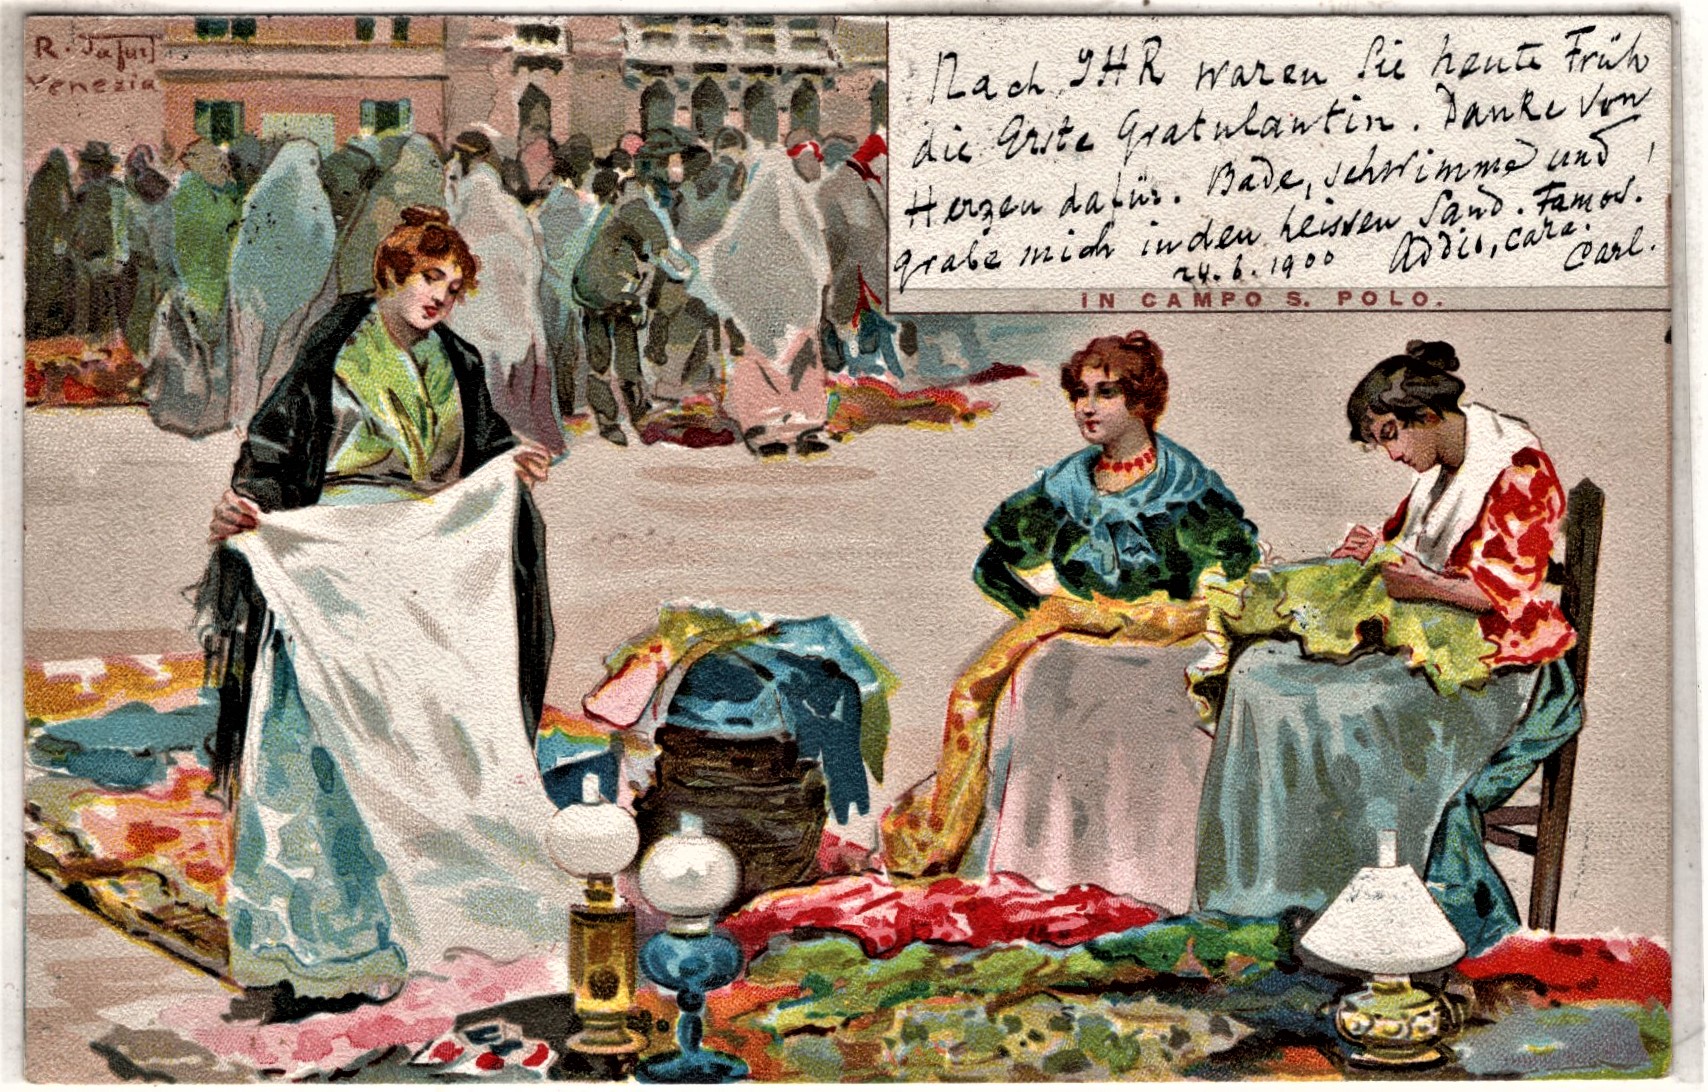 R. Tafuri
Venezia
Nach IHR waren Sie heute Früh
die Erste Gratulantin. Danke von
Herzen dafür. Bade, schwimme und
grabe mich in den heissen Sand. Famos.
24.6.1900 Addio, cara.
Carl.
IN CAMPO S. POLO.